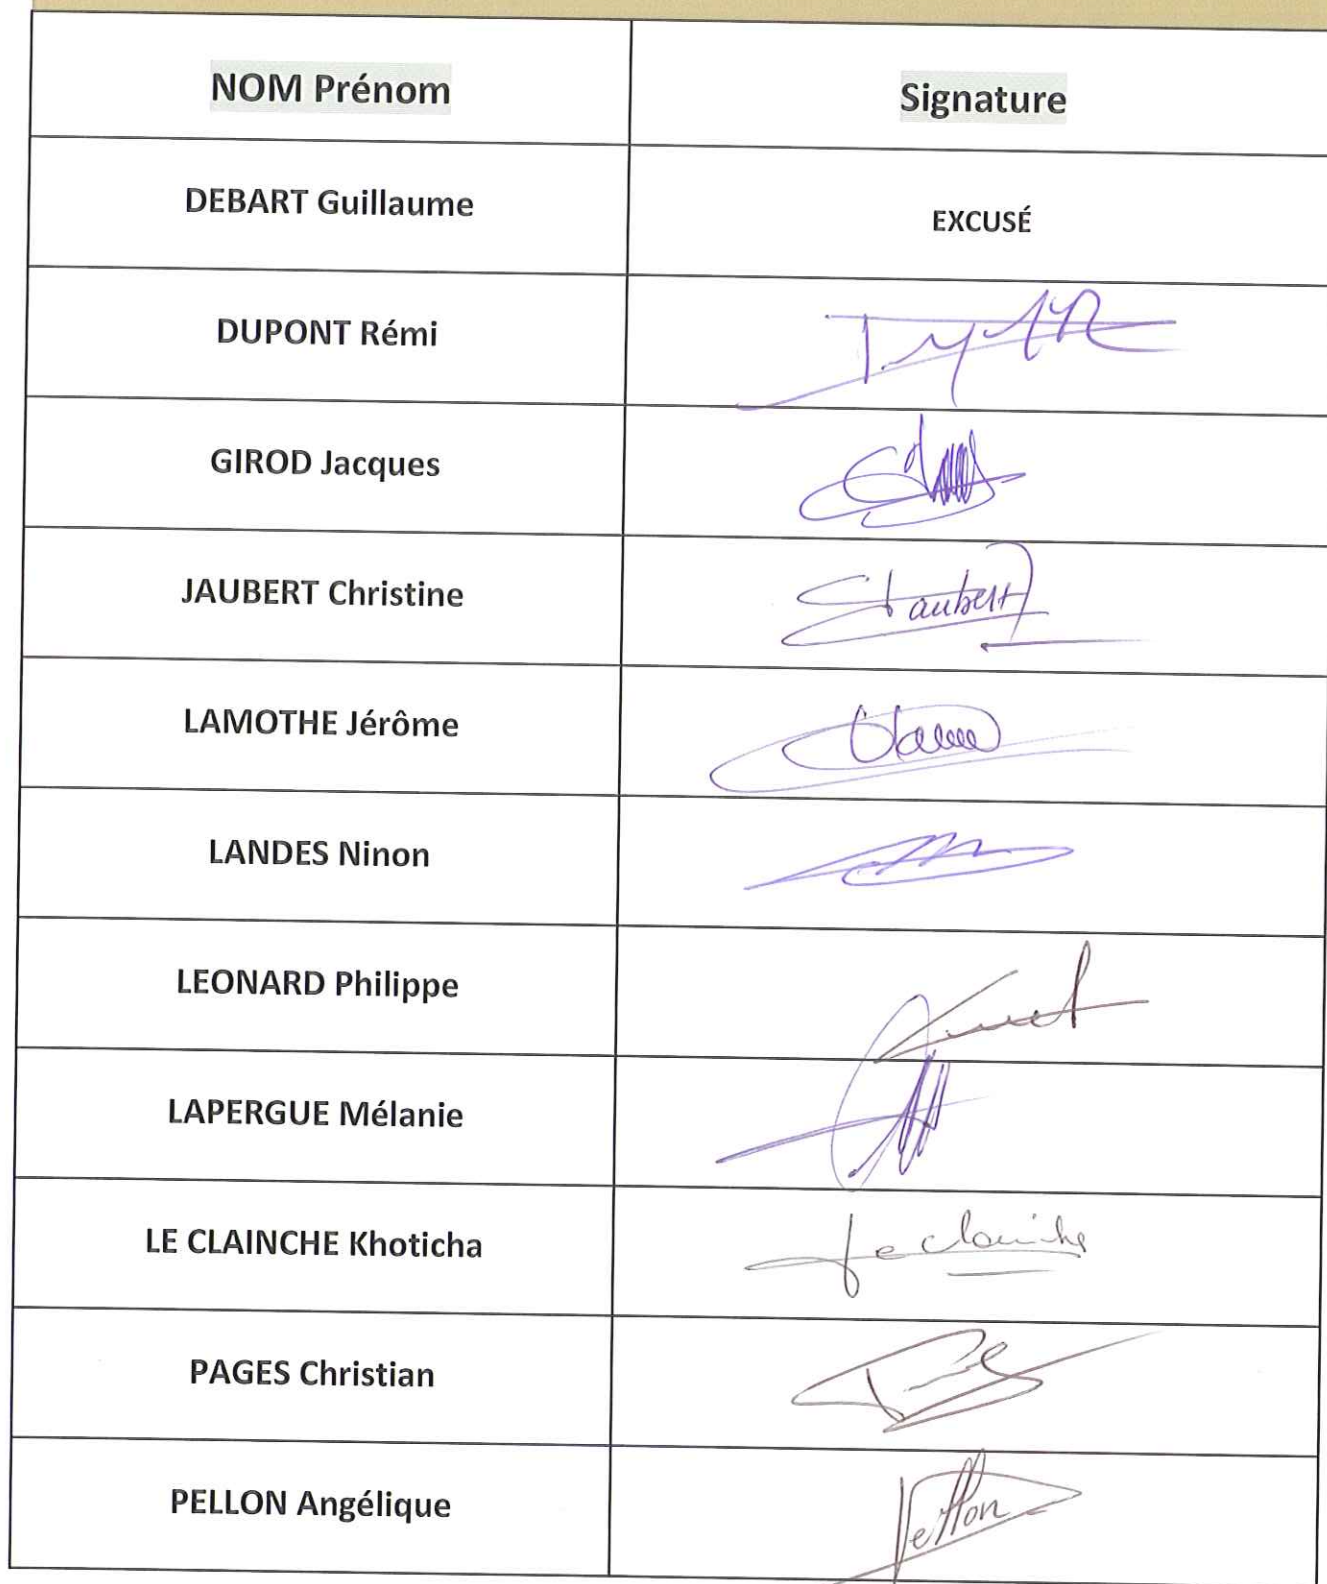 NOM Prénom
Signature
DEBART Guillaume
EXCUSÉ
DUPONT Rémi
GIROD Jacques
JAUBERT Christine
Jaubert
LAMOTHE Jérôme
LANDES Ninon
LEONARD Philippe
LAPERGUE Mélanie
LE CLAINCHE Khoticha
Le clainche
PAGES Christian
PELLON Angélique
Pellon